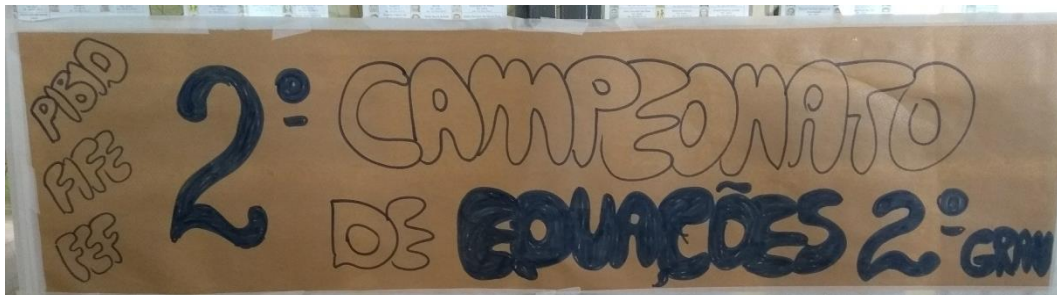 PIBID
FIFE
FEF
2º CAMPEONATO
DE EQUAÇÕES 2º GRAU